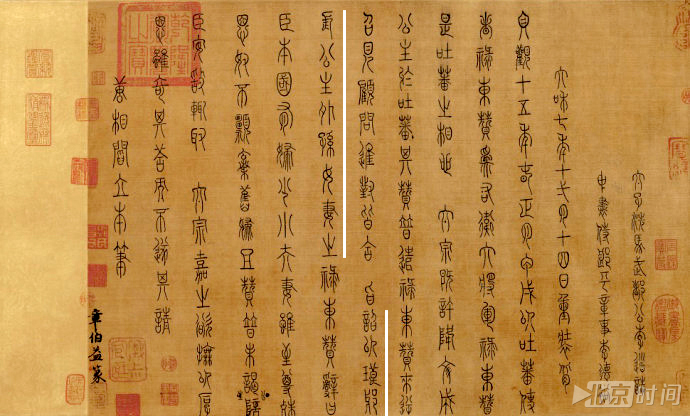 太子洗馬武都公李道誌
中書侍郎平章事李德裕
太和七年十一月十四日重裝背
貞觀十五年春正月甲戌以吐蕃使
者祿東贊為右衛大將軍祿東贊
是吐蕃之相也 太宗既許降文成
公主於吐蕃其贊普遣祿東贊來逆
召見顧問進對皆合 旨詔以瑯邪
長公主外孫女妻之祿東贊辭曰
臣本國有婦少小夫妻雖至尊殊
恩奴不願棄舊婦且贊普未謁陪
臣安敢輒取 太宗嘉之欲撫以厚
恩雖奇其答而不遂其請
唐相閻立本筆
章伯益篆
北京时间